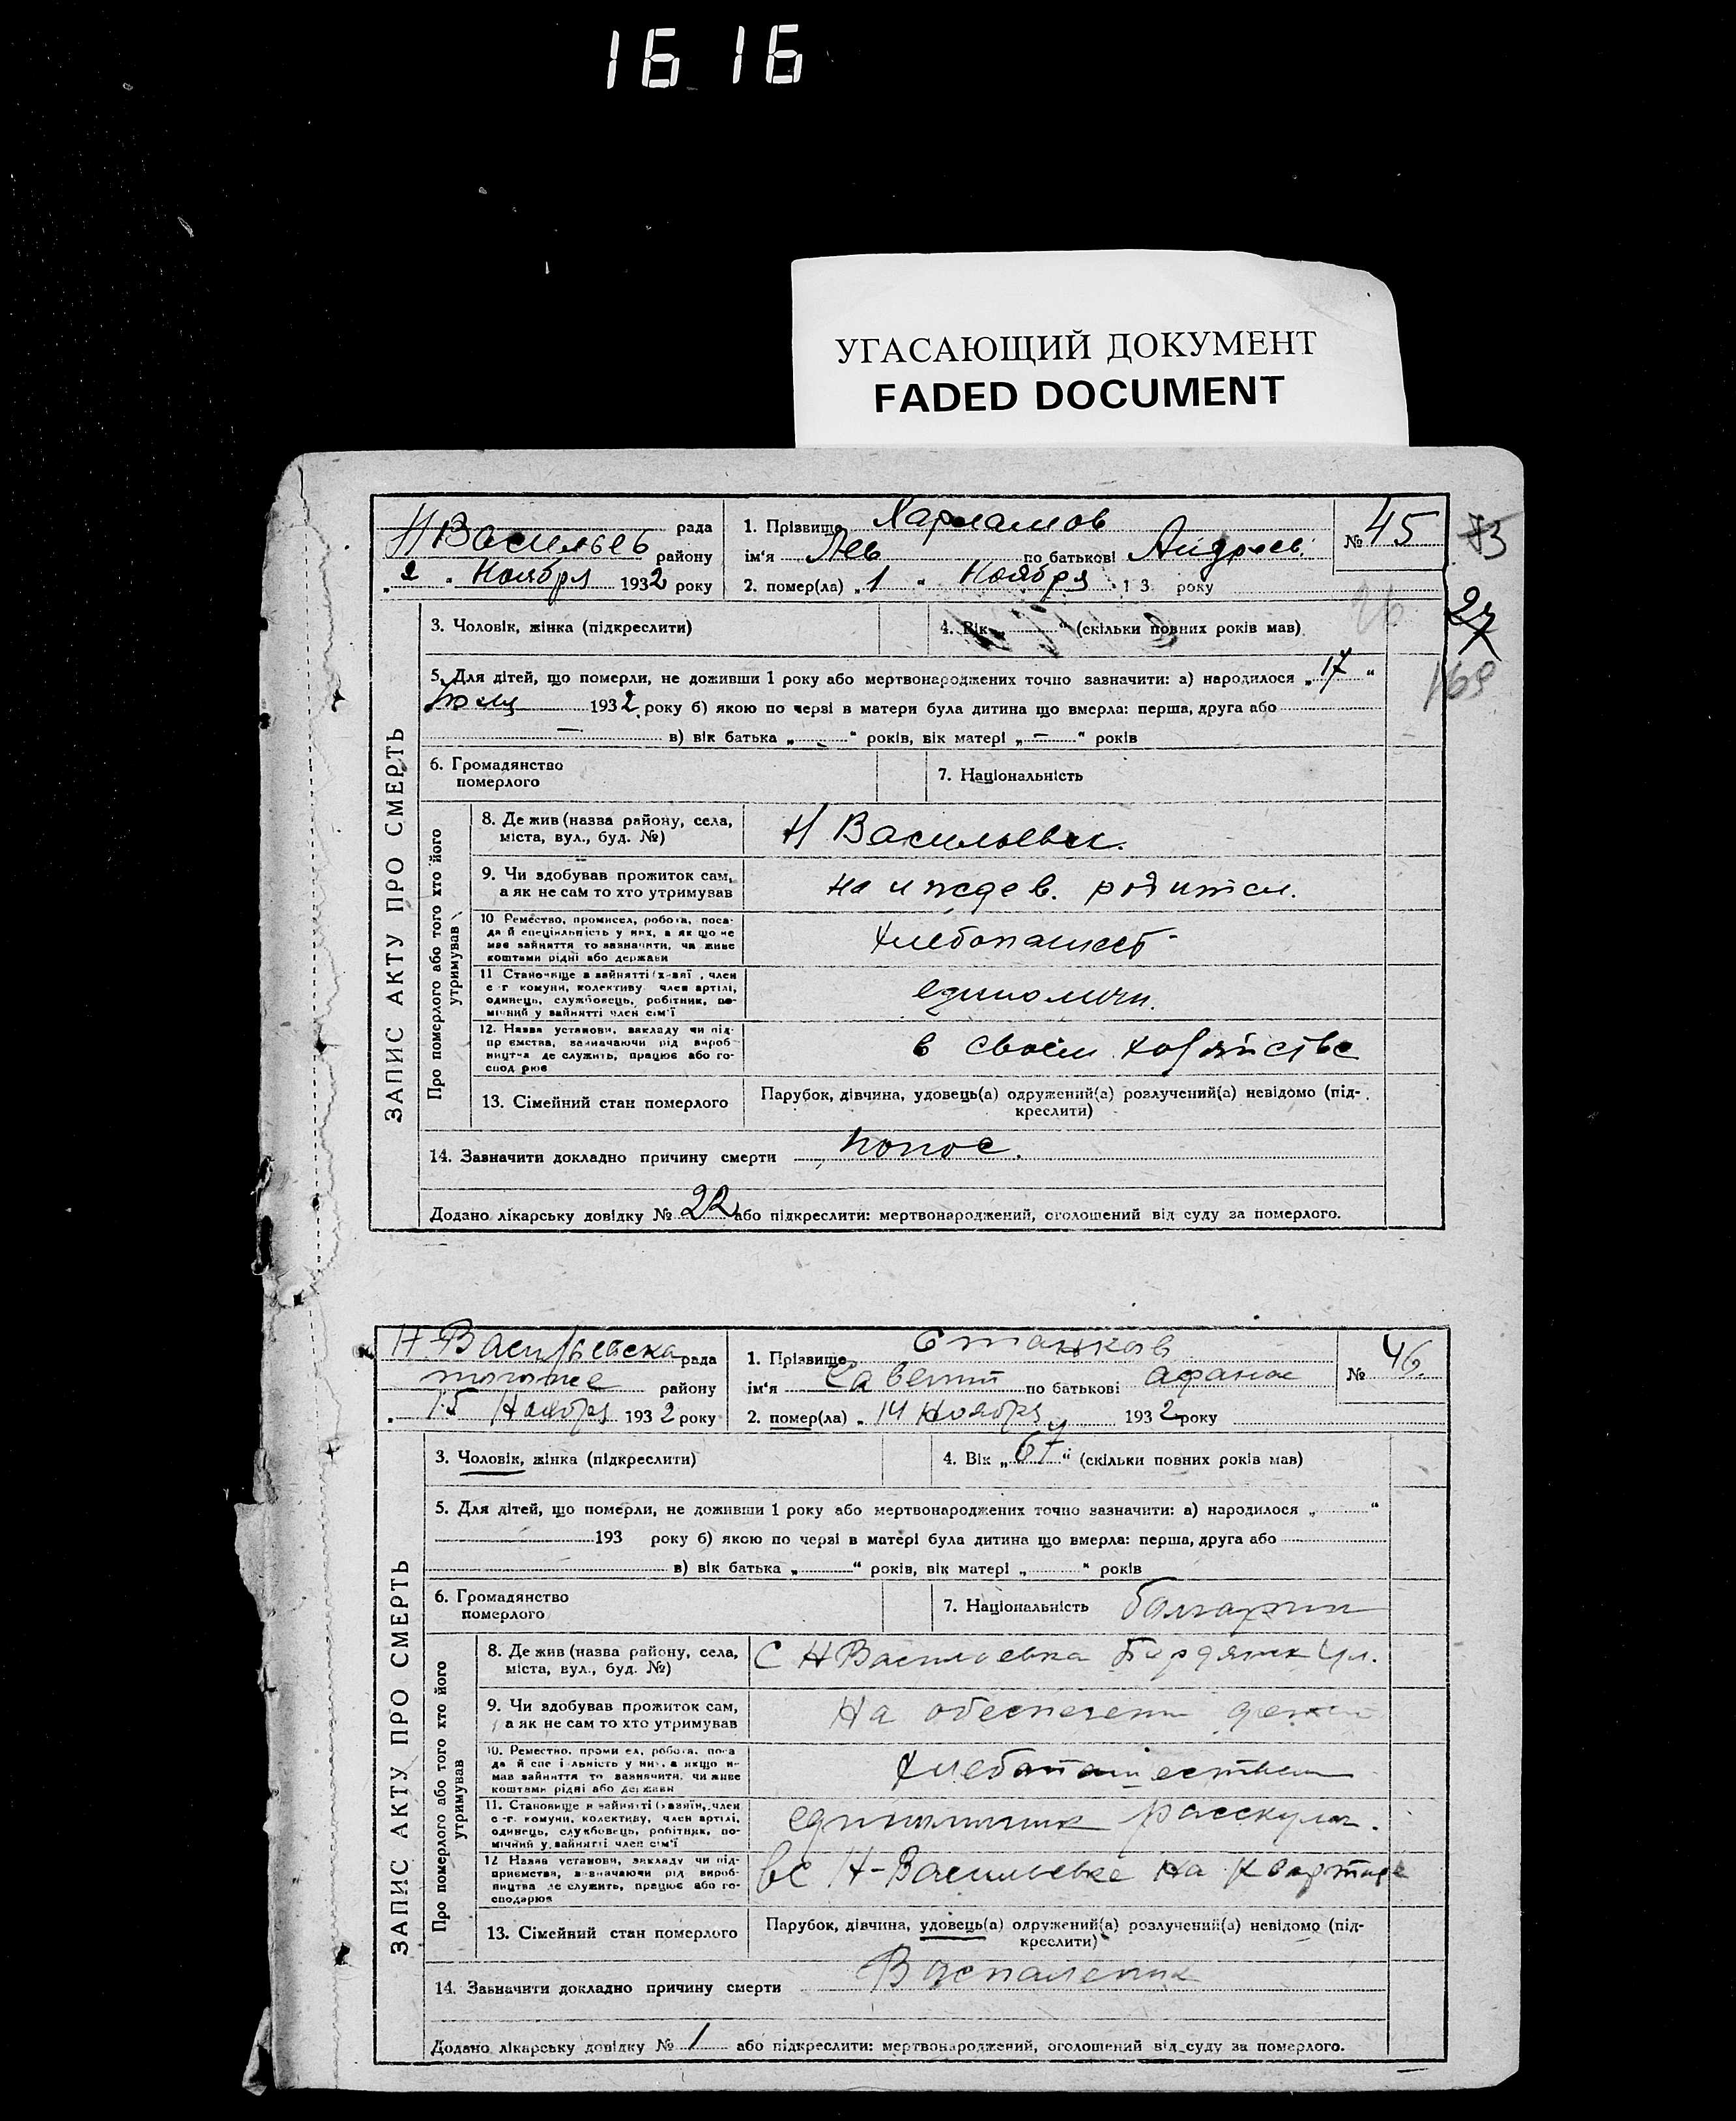 16 16
УГАСАЮЩИЙ ДОКУМЕНТ
FADED DOCUMENT
Н Васильев рада
району
„ 2 „ Ноября 1932 року
1. Прізвище Харламов
ім'я Лев по батькові Андреев.
2. помер(ла) „ 1 " Ноября 13 року
№ 45
73
27
169
3. Чоловік, жінка (підкреслити)
4. Вік „ " (скільки повних років мав)
5. Для дітей, що померли, не доживши 1 року або мертвонароджених точно зазначити: а) народилося „ 17 "
Июля 1932 року б) якою по черзі в матери була дитина що вмерла: перша, друга або
— в) вік батька „ - " років, вік матері „ — " років
6. Громадянство
померлого
7. Національність
ЗАПИС АКТУ ПРО СМЕРТЬ
Про померлого або того хто його
утримував
8. Де жив (назва району, села,
міста, вул., буд. №)
Н Васильевк.
9. Чи здобував прожиток сам,
а як не сам то хто утримував
на иждев. родител.
10 Ремество, промисел, робота, поса-
да й спеціяльність у них, а як що не
мав зайняття то зазначити, чи живе
коштами рідні або держави
хлебопашест
11 Становище в зайнятті (хазяї, член
с-г комуни, колективу член артілі,
одинець, службовець, робітник, по-
мічний у зайнятті член сім'ї
единоличн.
12. Назва установи, закладу чи під-
приємства, зазначаючи рід вироб
ництва де служить, працює або го-
сподарює
в своем хозяйстве
13. Сімейний стан померлого
Парубок, дівчина, удовець(а) одружений(а) розлучений(а) невідомо (під-
креслити)
14. Зазначити докладно причину смерти понос.
Додано лікарську довідку № 22 або підкреслити: мертвонароджений, оголошений від суду за померлого.
Н-Васильевска рада
району
„ 15 Ноября 1932 року
1. Прізвище Станков
ім'я Савелий по батькові Афанас
2. помер(ла) „ 14 Ноября 1932 року
№ 46.
3. Чоловік, жінка (підкреслити)
4. Вік „ " (скільки повних років мав)
5. Для дітей, що померли, не доживши 1 року або мертвонароджених точно зазначити: а) народилося „ "
193 року б) якою по черзі в матері була дитина що вмерла: перша, друга або
в) вік батька „ " років, вік матері „ " років
6. Громадянство
померлого
7. Національність болгарин
ЗАПИС АКТУ ПРО СМЕРТЬ
Про померлого або того хто його
утримував
8. Де жив (назва району, села,
міста, вул., буд. №)
С Н Васильевка Бердянск
9. Чи здобував прожиток сам,
а як не сам то хто утримував
На обеспечении
10. Ремество, промисел, робота, поса
да й спеціяльність у них, а якщо не
мав зайняття то зазначити, чи живе
коштами рідні або держави
хлебопашеством
11. Становище в зайнятті (хазяїн, член
с-г. комуни, колективу, член артілі,
одинець, службовець, робітник, по-
мічний у зайнятті член сім'ї
единоличник раскулач.
12 Назва установи, закладу чи під-
приємства, зазначаючи рід вироб-
ництва де служить, працює або го-
сподарює
в с Н-Васильевке на квартире
13. Сімейний стан померлого
Парубок, дівчина, удовець(а) одружений(а) розлучений(а) невідомо (під-
креслити)
14. Зазначити докладно причину смерти Воспаление
Додано лікарську довідку № 1 або підкреслити: мертвонароджений, оголошений від суду за померлого.